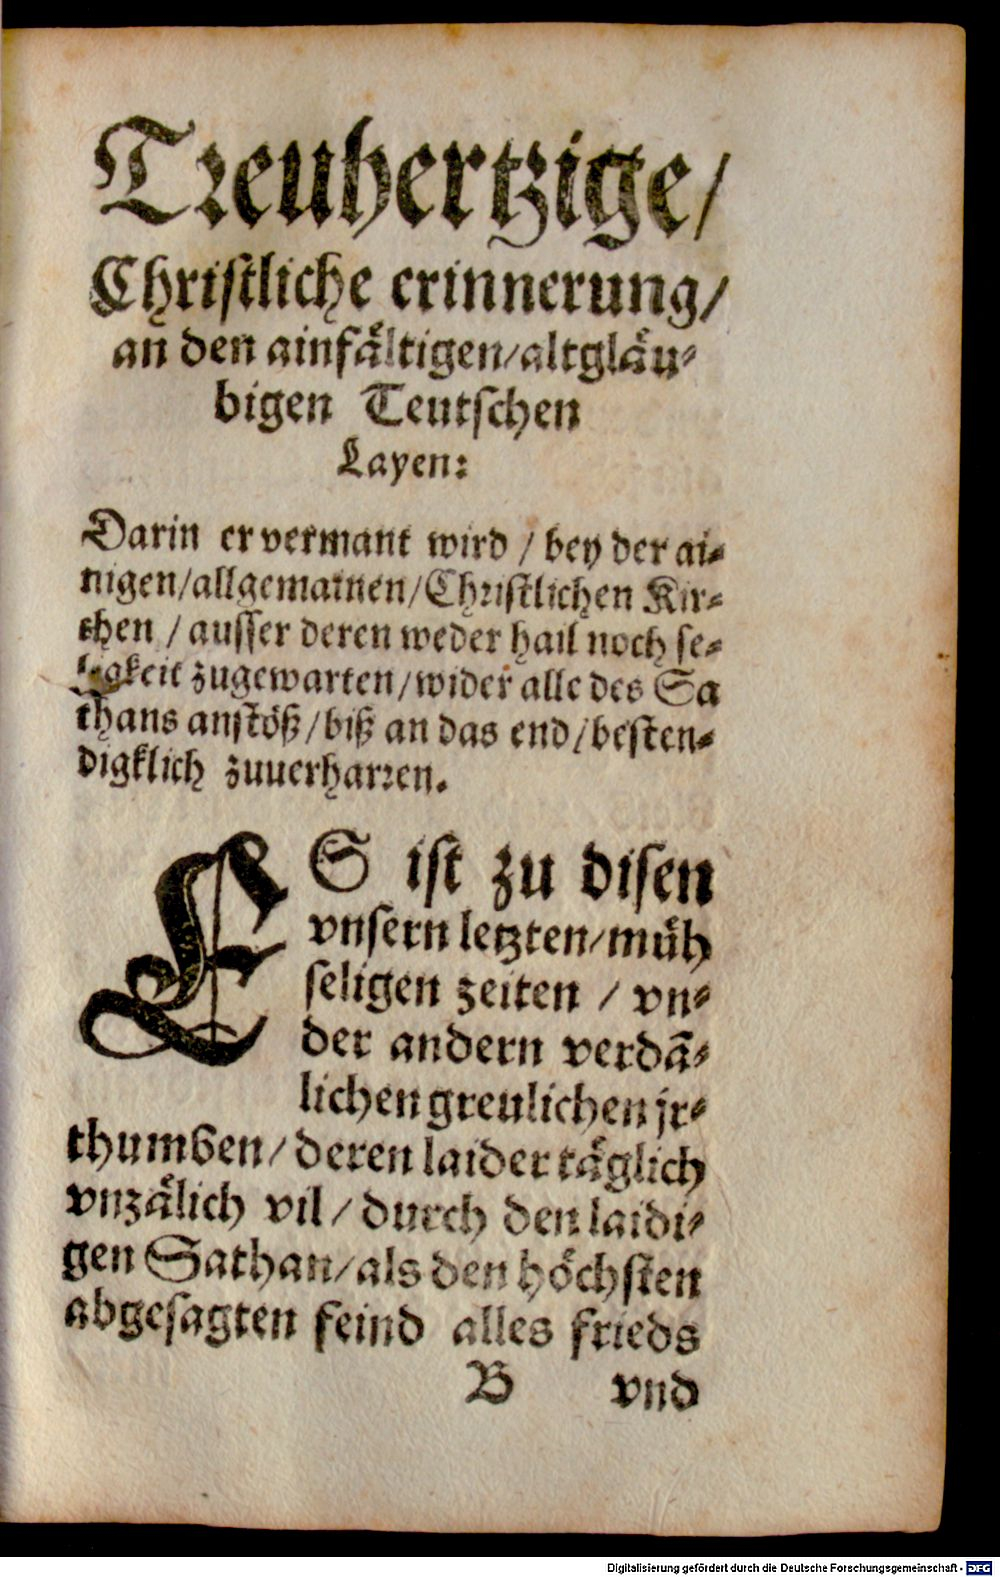 Treuhertzige/
Christliche erinnerung/
an den ainfåltigen/altgläu⸗
bigen Teutschen
Layen:
Darin er vermant wird / bey der ai⸗
nigen/allgemainen/Christlichen Kir⸗
chen / ausser deren weder hail noch se⸗
ligkeit zugewarten/wider alle des Sa
thans anstöß/biß an das end/besten⸗
digklich zuuerharren.
ES ist zu disen
vnsern letzten/müh
seligen zeiten / vn⸗
der andern verdã⸗
lichen greulichen jr⸗
thumben/deren laider täglich
vnzålich vil/durch den laidi⸗
gen Sathan/als den höchsten
abgesagten feind alles frieds
B vnd
Digitalisierung gefördert durch die Deutsche Forschungsgemeinschaft - DFG